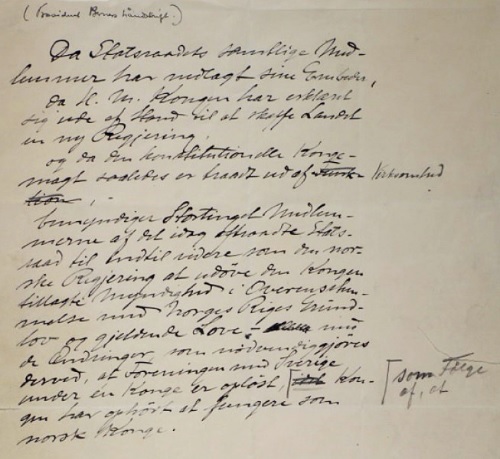 (President Berners Håndskrift.)
Da Statsraadets samtlige Med-
lemmer har nedlagt sine Embeder,
da H. M. Kongen har erklært
sig ude af Stand til at skaffe Landet
en ny Regjering,
og da den konstitutionelle Konge-
magt saaledes er traadt ud af Virksomhed
,-
bemyndiger Stortinget Medlem-
merne af det idag aftraadte Stats-
raad til indtil videre som den nor-
ske Regjering at udöve den Kongen
tillagte Myndighed i Overensstem-
melse med Norges Riges Grund-
lov og gjeldende Love - med
de Ændringer som nødvendiggjøres
derved, at Foreningen med Sverige
under én Konge er oplöst, Kon-
gen har ophört at fungere som
norsk Konge.
som Følge
af, at